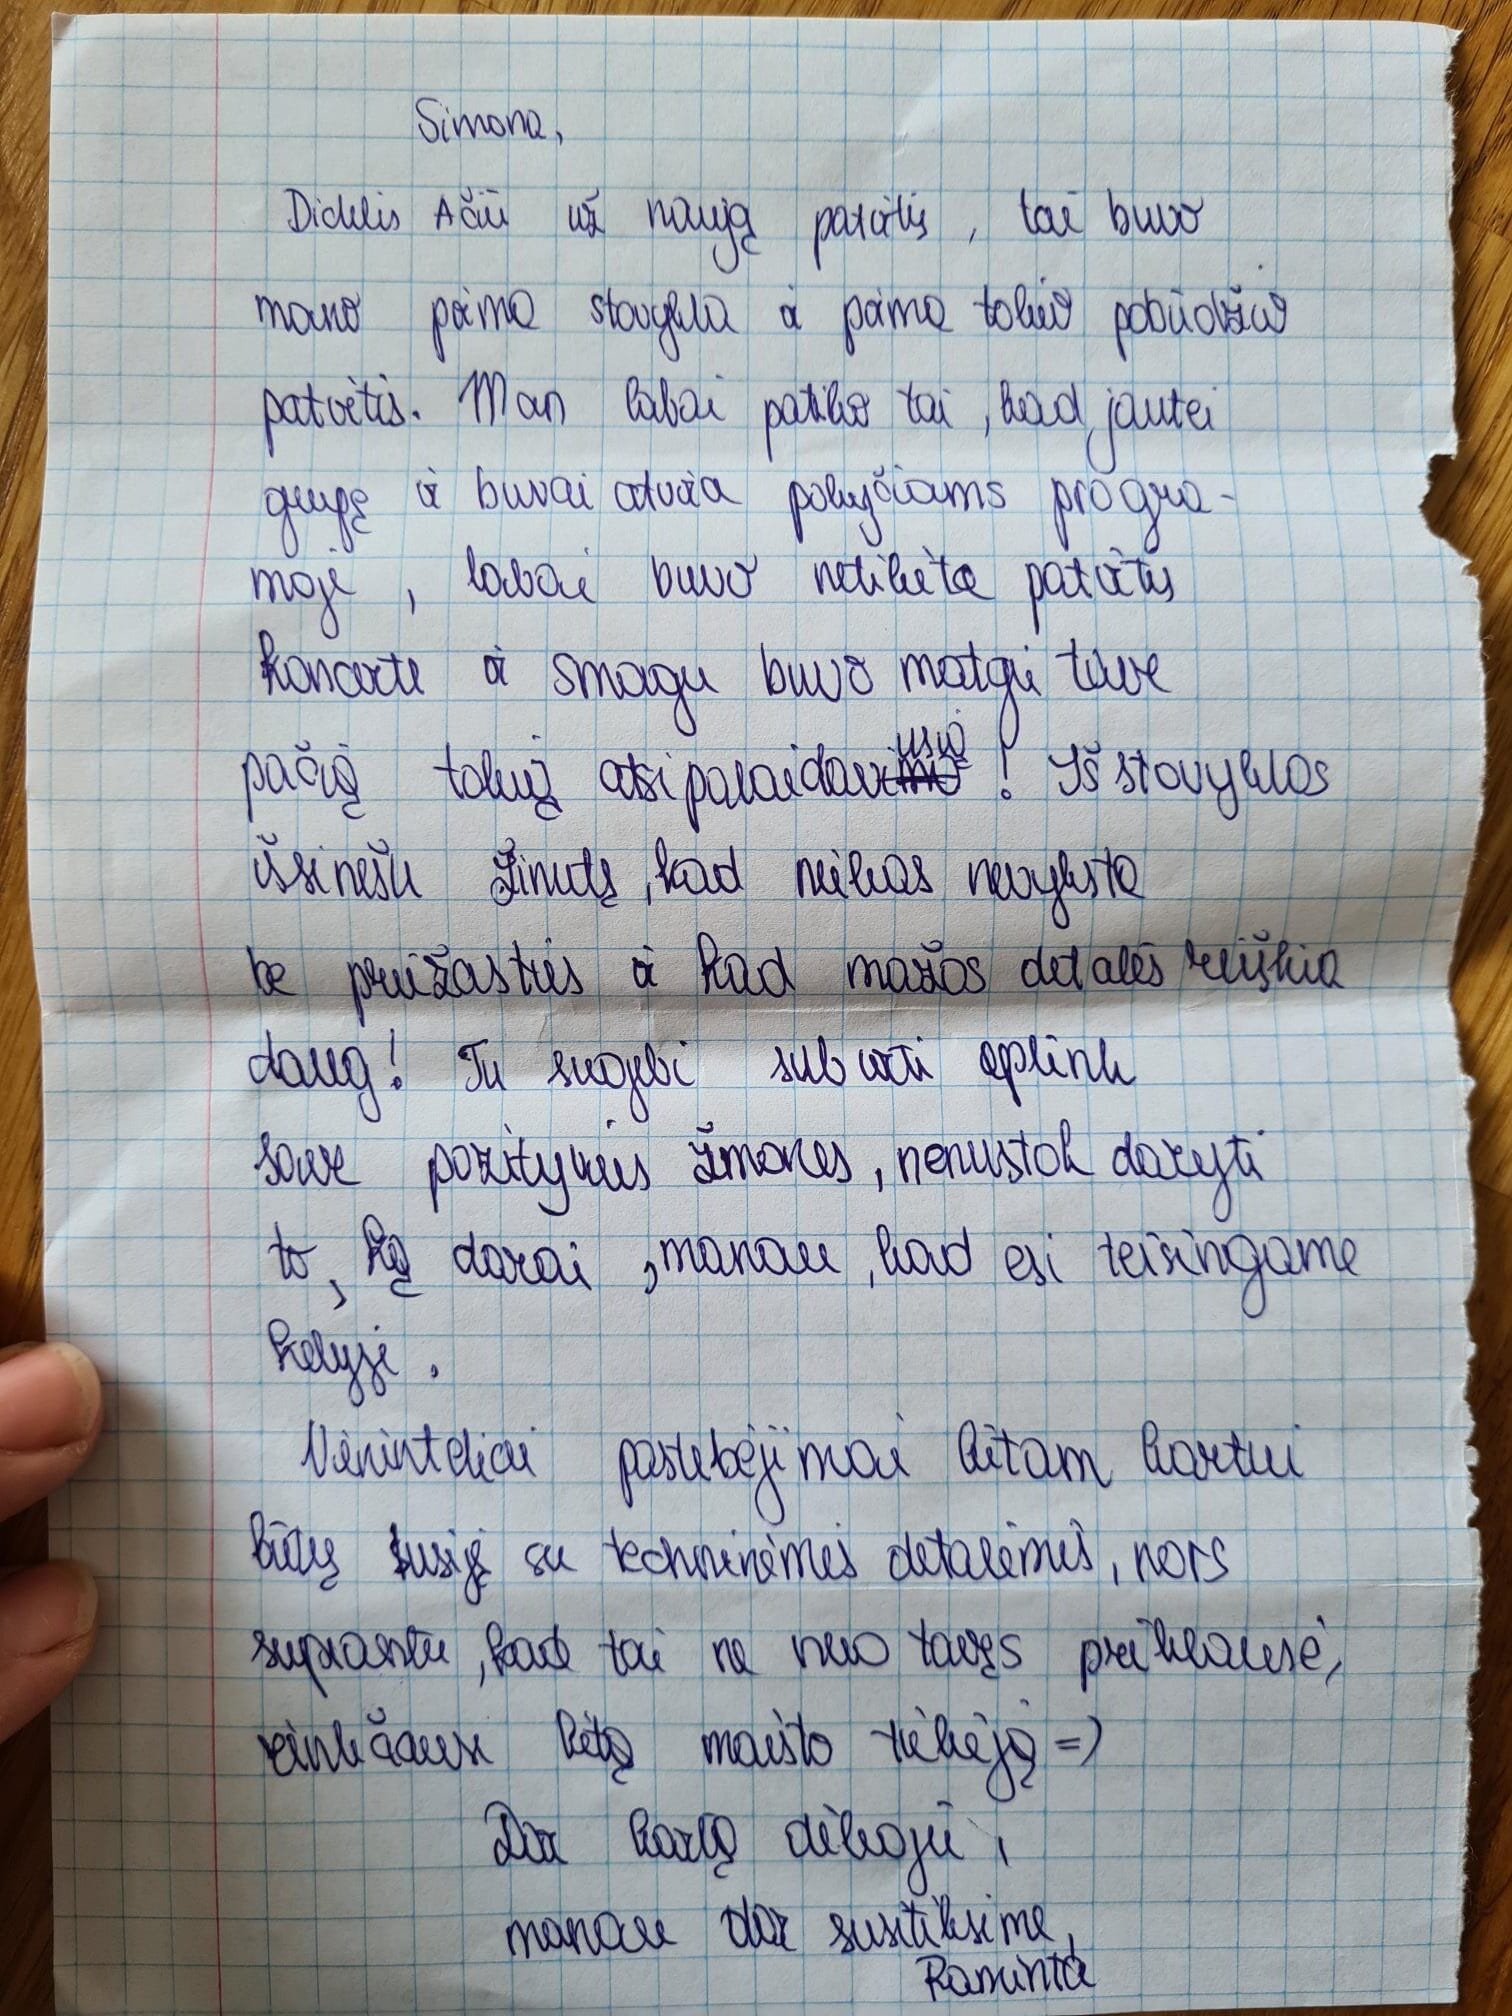 Simona,
Didelis Ačiū už naują patirtį, tai buvo
mano pirma stovykla ir pirma tokio pobūdžio
patirtis. Man labai patiko tai, kad jautei
grupę ir buvai atvira pokyčiams progra-
moje, labai buvo netikėta patirtis
koncerte ir smagu buvo matyti tave
pačią tokią atsipalaidavusią! Iš stovyklos
išsinešu žinutę, kad niekas nevyksta
be priežasties ir kad mažos detalės reiškia
daug! Tu sugebi suburti aplink
save pozityvius žmones, nenustok daryti
to, ką darai, manau, kad esi teisingame
kelyje.
Vieninteliai pastebėjimai kitam kartui
būtų susiję su techninėmis detalėmis, nors
suprantu, kad tai ne nuo tavęs priklausė,
rinkčiausi kitą maisto tiekėją =)
Dar kartą dėkoju,
manau dar susitiksime,
Raminta